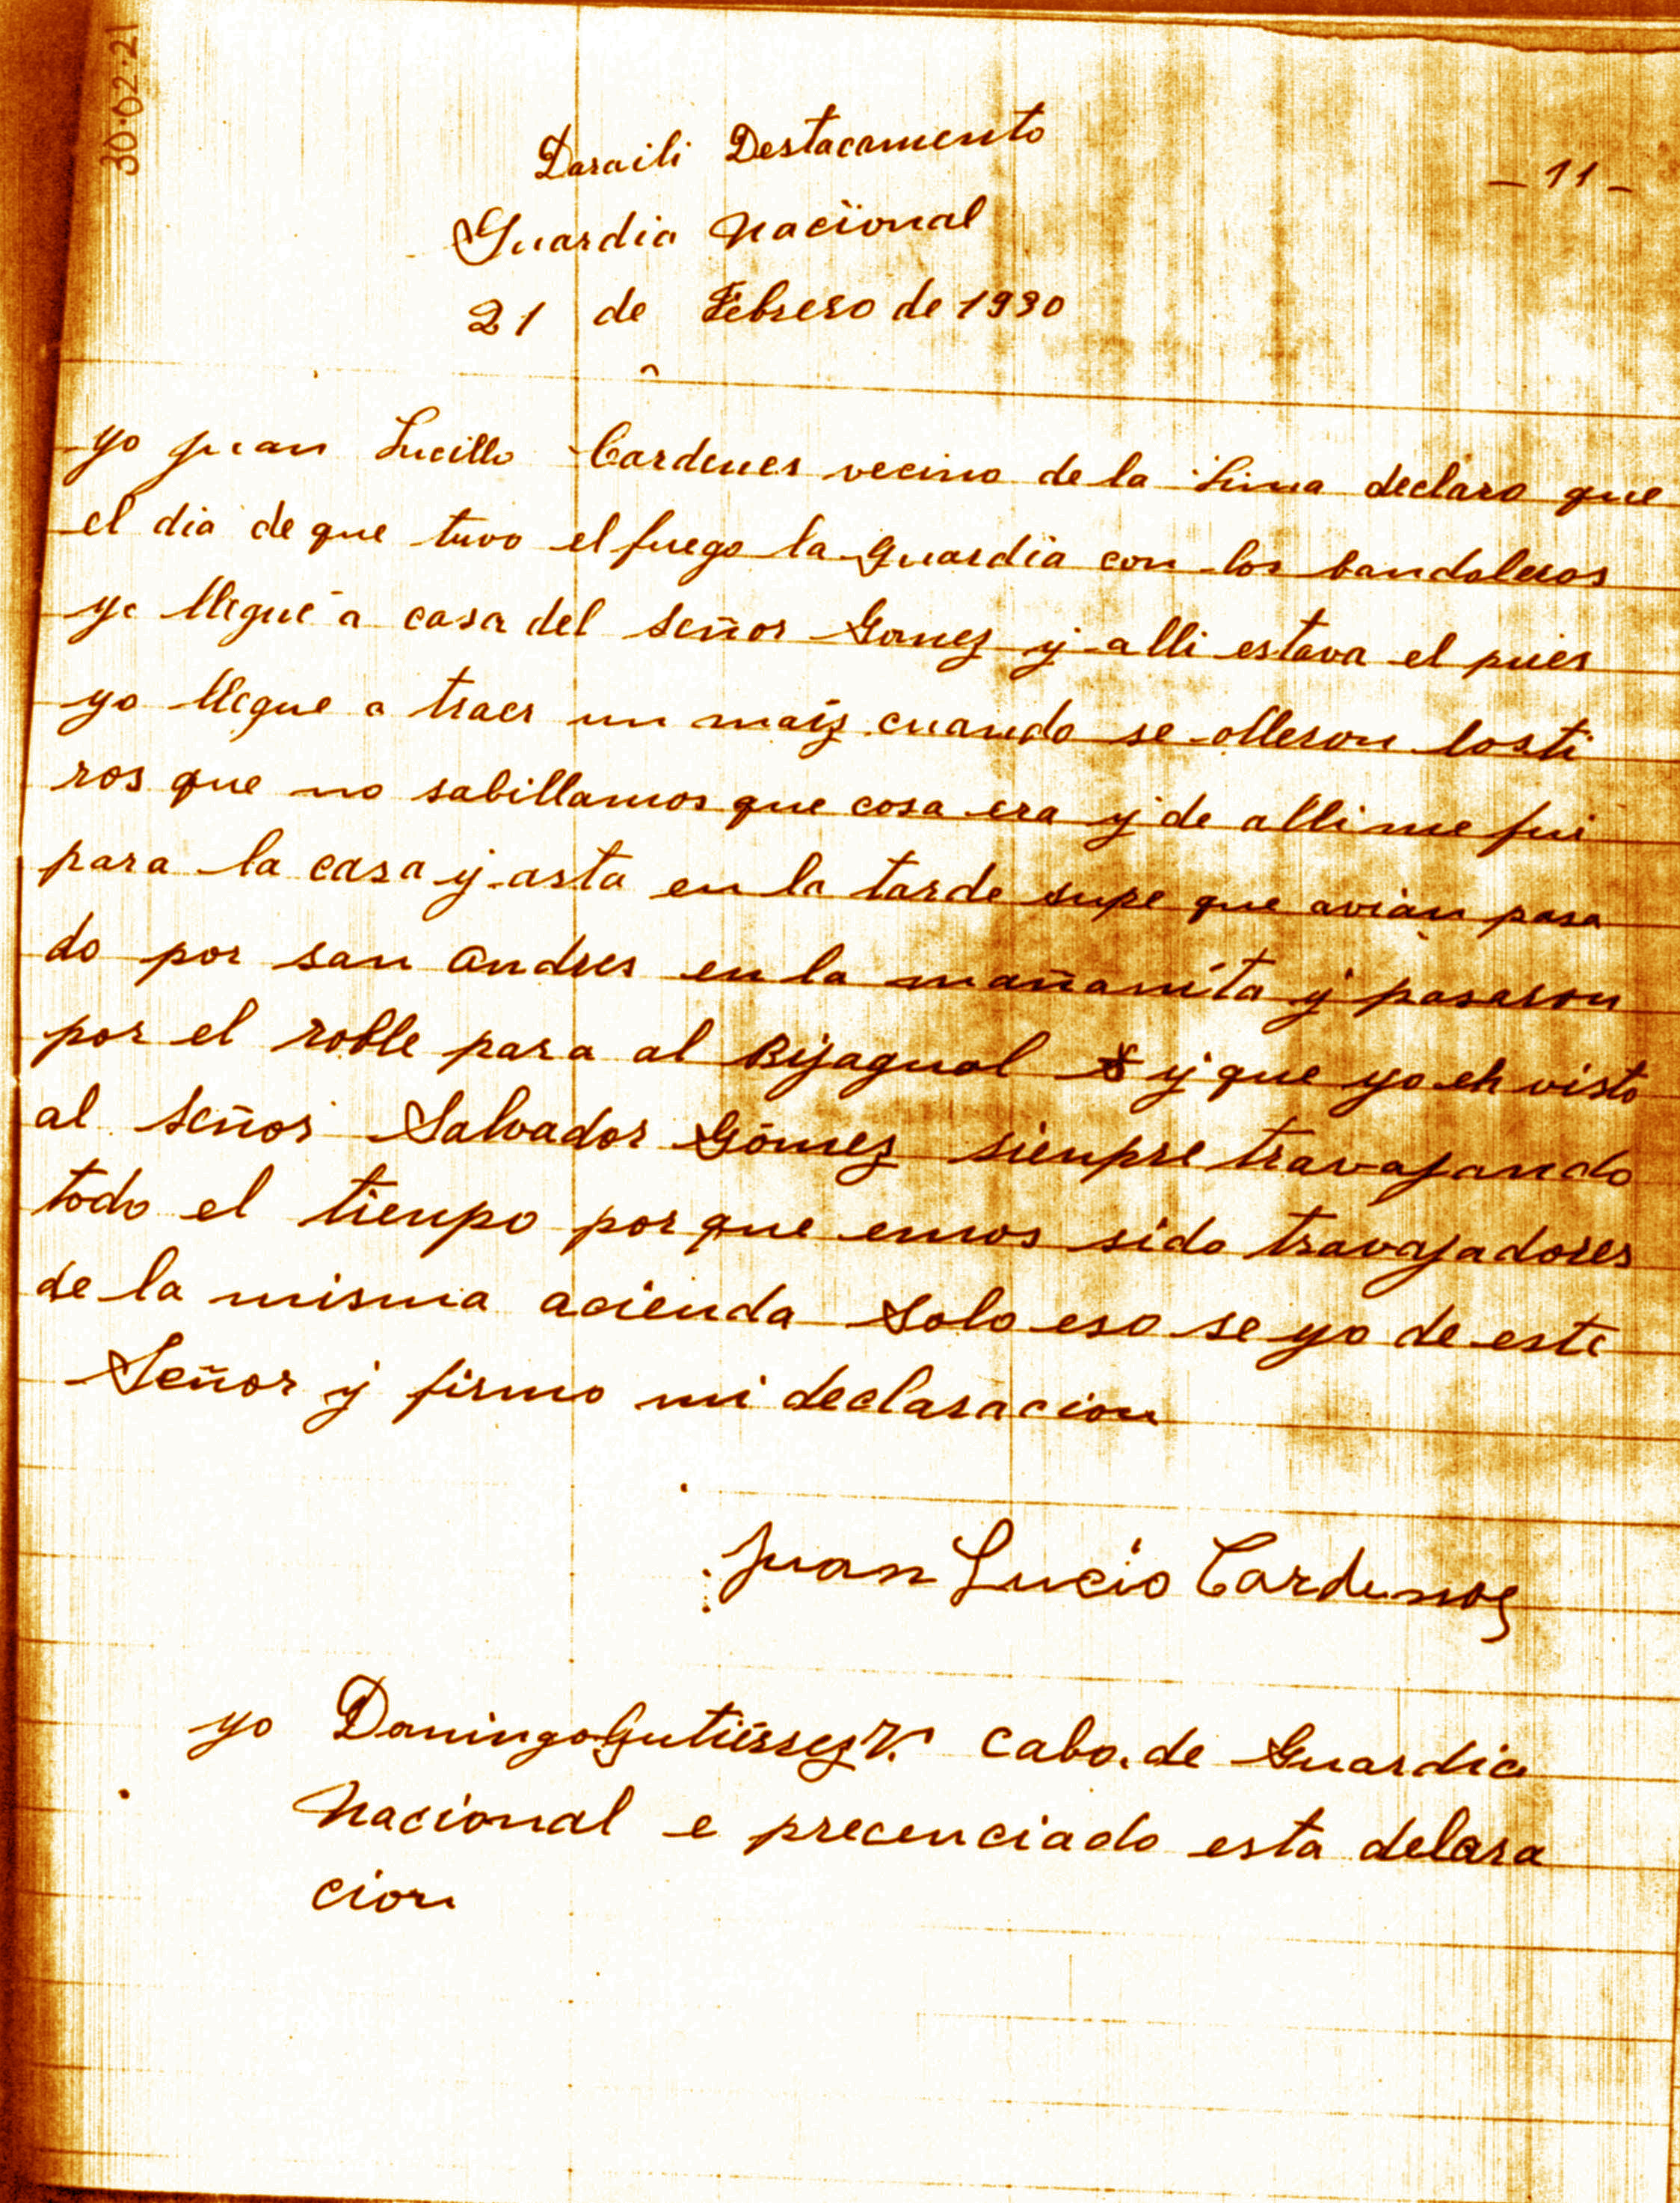 30.02.21
Daraili Destacamento
- 11 -
Guardia Nacional
21 de Febrero de 1930
yo juan Lucillo Cardenes vecino de la Lima declaro que
el dia de que tuvo el fuego la guardia con los bandoleros
yo llegué a casa del señor Gomez y alli estava el pues
yo llegue a traer un maiz cuando se olleron los ti
ros que no sabillamos que cosa era y de alli me fui
para la casa y asta en la tarde supe que avian pasa
do por san Andres en la mañanita y pasaron
por el roble para al Bijagual y que yo eh visto
al señor Salvador Gómez sienpre travajando
todo el tienpo porque emos sido travajadores
de la misma acienda Solo eso se yo de este
Señor y firmo mi declaracion
Juan Lucio Cardenas
yo Domingo Gutiérrez V. Cabo. de Guardia
Nacional e precenciado esta delara
cion